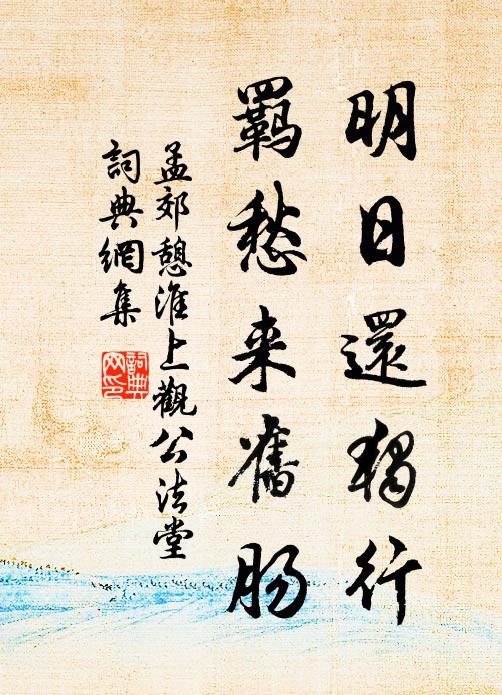 明日還獨行
羈愁来舊肠
孟郊憩淮上觀公法堂
詞典網集
詞典网印